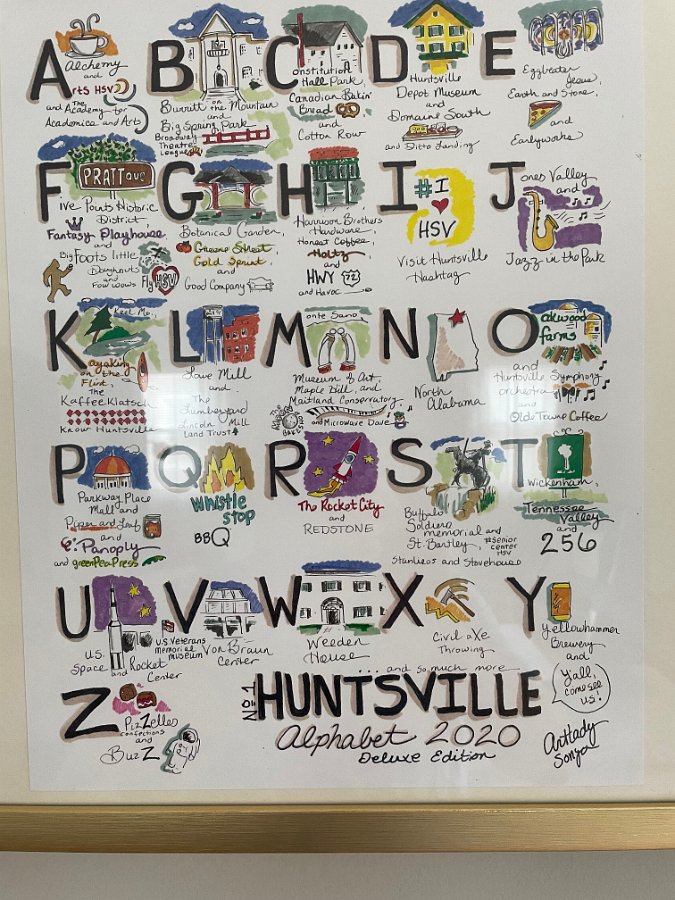 A
Alchemy
and
Arts HSV
and The Academy for
Academics and Arts
B
Burritt on
the Mountain
and
Big Spring Park
Broadway
Theatre
League
C
Constitution
Hall Park
Canadian Bakin'
Bread
and
Cotton Row
D
Huntsville
Depot Museum
and
Domaine South
and Ditto Landing
E
Eggbeater
Jesus,
Earth and Stone,
and
Earlyworks
F
PRATT AVE
ive Points Historic
District,
Fantasy Playhouse
and
Big Foots little
Doughnuts
and
Pow wows
Fly HSV
G
Botanical Garden,
Greene Street
Gold Sprint,
and
Good Company
H
Harrison Brothers
Hardware,
Honest Coffee,
Holtz
and
HWY 72
and Havoc
I
#I
HSV
Visit Huntsville
Hashtag
J
ones Valley
and
Jazz in the Park
K
Keel Mo.,
ayaking
on the
Flint,
The
Kaffeeklatsch
Know Huntsville
L
Lowe Mill
and
The
Lumberyard
Lincoln Mill
Land Trust
M
onte Sano
Museum of Art,
Maple Hill, and
Maitland Conservatory,
and Microwave Dave
N
North
Alabama
O
akwood
farms
and
Huntsville Symphony
orchestra
and
Olde Towne Coffee
P
Parkway Place
Mall and
Piper and Leaf
and
Panoply
and greenPea Press
Q
Whistle
Stop
BBQ
R
The Rocket City
and
REDSTONE
S
Buffalo
Soldiers
memorial and
St. Bartley,
#Senior
center
HSV
Stanlieos and Stovehouse
T
Wickenham,
Tennessee
Valley
and
256
U
U.S.
Space
and Rocket
Center
U.S. Veterans
memorial
museum
V
Von Braun
Center
W
Weeden
House
X
Civil aXe
Throwing
Y
yellowhammer
Brewery
and
y'all,
come see
us!
... and so much more...
Z
PizZelles
confections
and
BuzZ
No 1
HUNTSVILLE
Alphabet 2020
Deluxe Edition
Artlady
Sonya